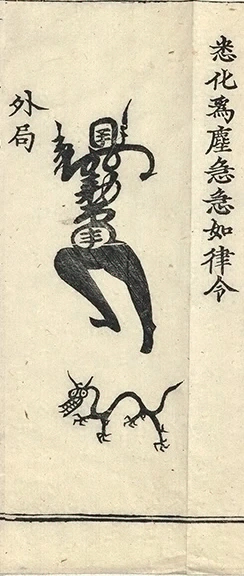 悉化為塵急急如律令
外局